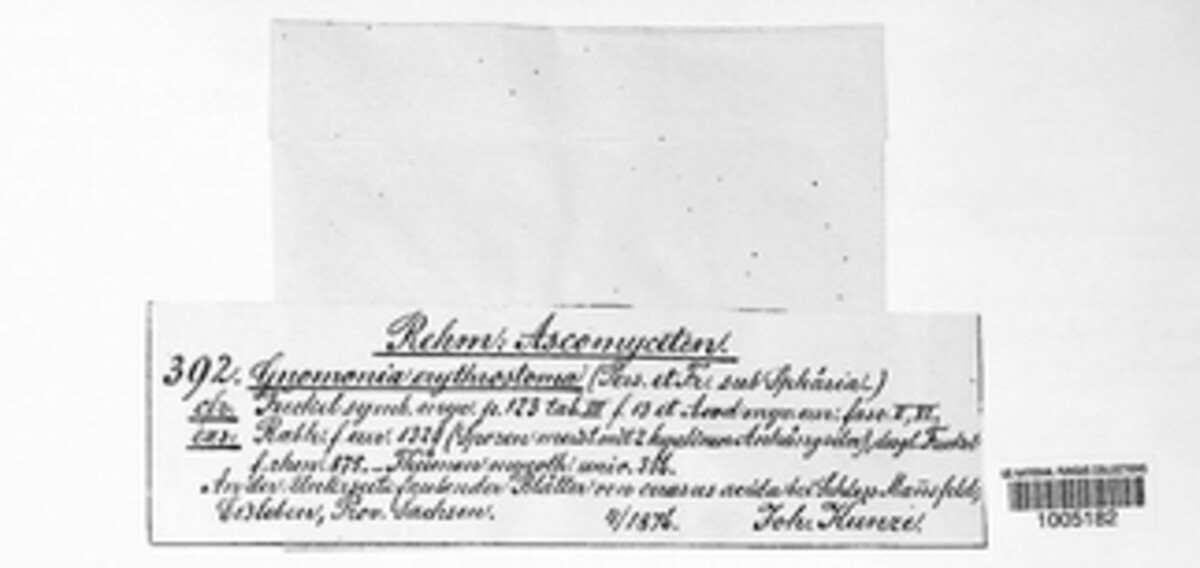 Rehm: Ascomyceten.
392. Gnomonia erythrostoma (Pers. et Fr. sub Sphäria.)
cfr. Fuckel symb. myc. p. 123 tab. III f. 13 et Nood myc. eur. fasc. V, VI.
exs. Rabh. f. eur. 1328 (Sporen meist mit 2 hyalinen Anhängseln), Fuckel
f. rhen. 878. – Thümen mycoth. univ. 366.
An der Unterseite faulender Blätter von cerasus acida bei Schloss Mansfeld,
Eisleben, Prov. Sachsen. 4/1876. Joh. Kunze.
US NATIONAL FUNGUS COLLECTIONS
1005182